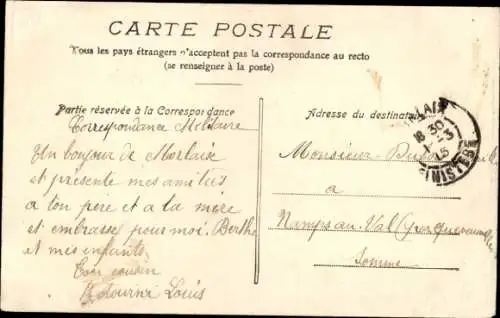 CARTE POSTALE
Tous les pays étrangers n'acceptent pas la correspondance au recto
(se renseigner à la poste)
Partie réservée à la Correspondance
Correspondance Militaire
Un bonjour de Morlaix
et présente mes amitiés
a ton père et a la mère
et embrasse pour moi. Berthe
et mes enfants
Ton cousin
Louis
Adresse du destinataire
18 30
1 - 3
15
FINISTERE
Monsieur
a
Namps au Val
Somme